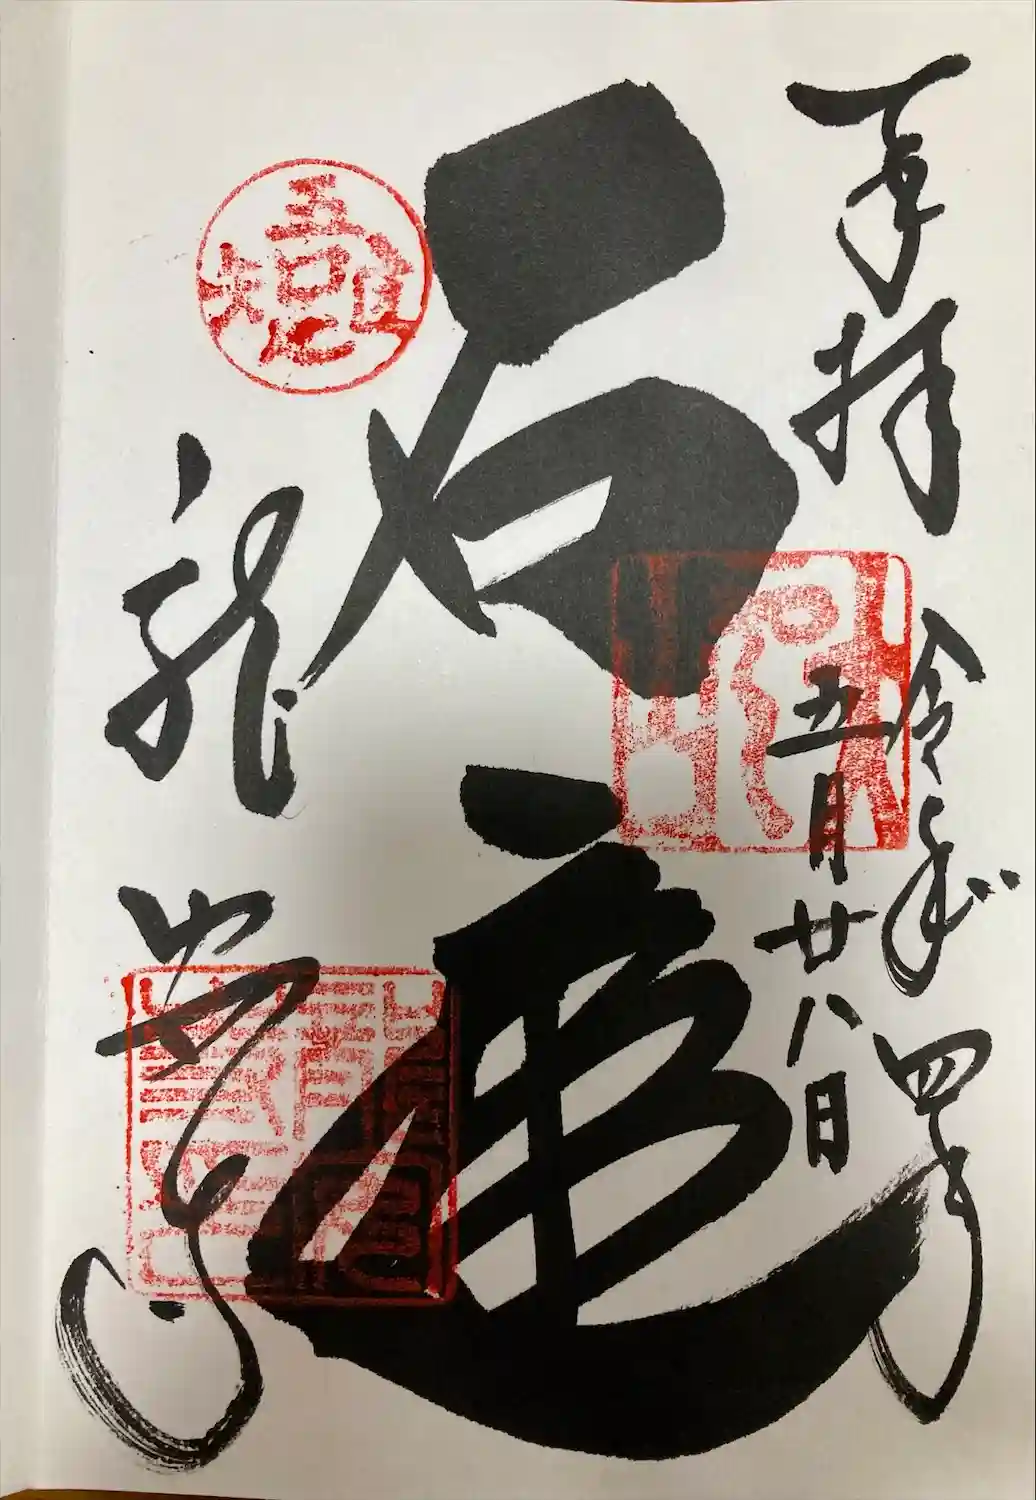 奉拝
令和四年
五月廿八日
石庭
吾唯足知
龍安寺